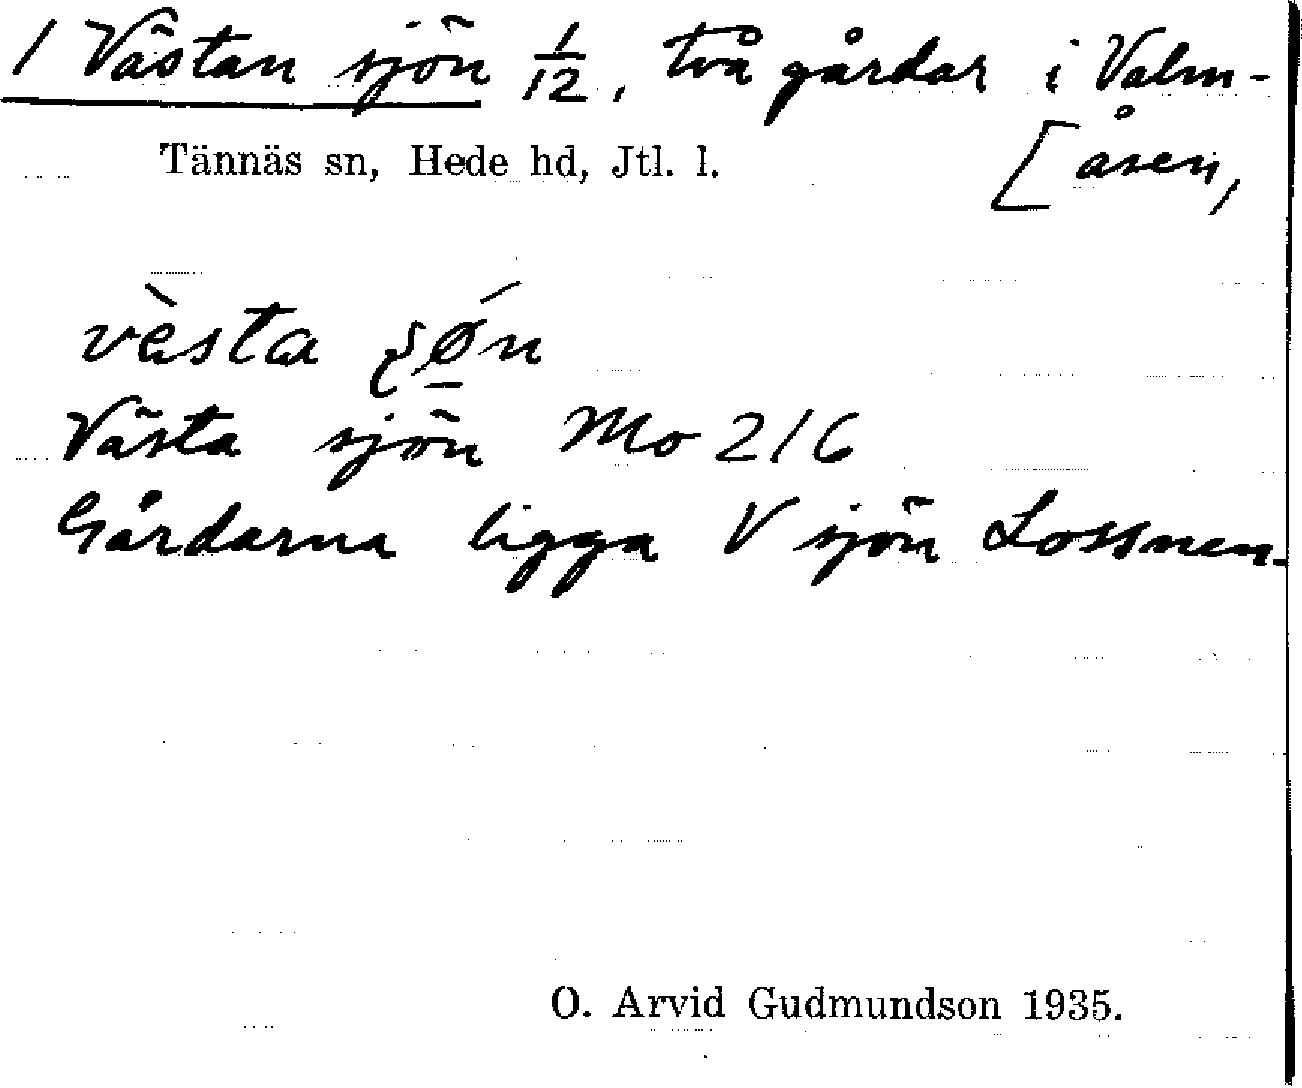 1 Västan sjön 1/12, två gårdar i Valm-
[åsen,
Tännäs sn, Hede hd, Jtl. l.
vèsta ʂǿn
Västa sjön Mo 216
Gårdarna ligga V sjön Lossnen.
O. Arvid Gudmundson 1935.